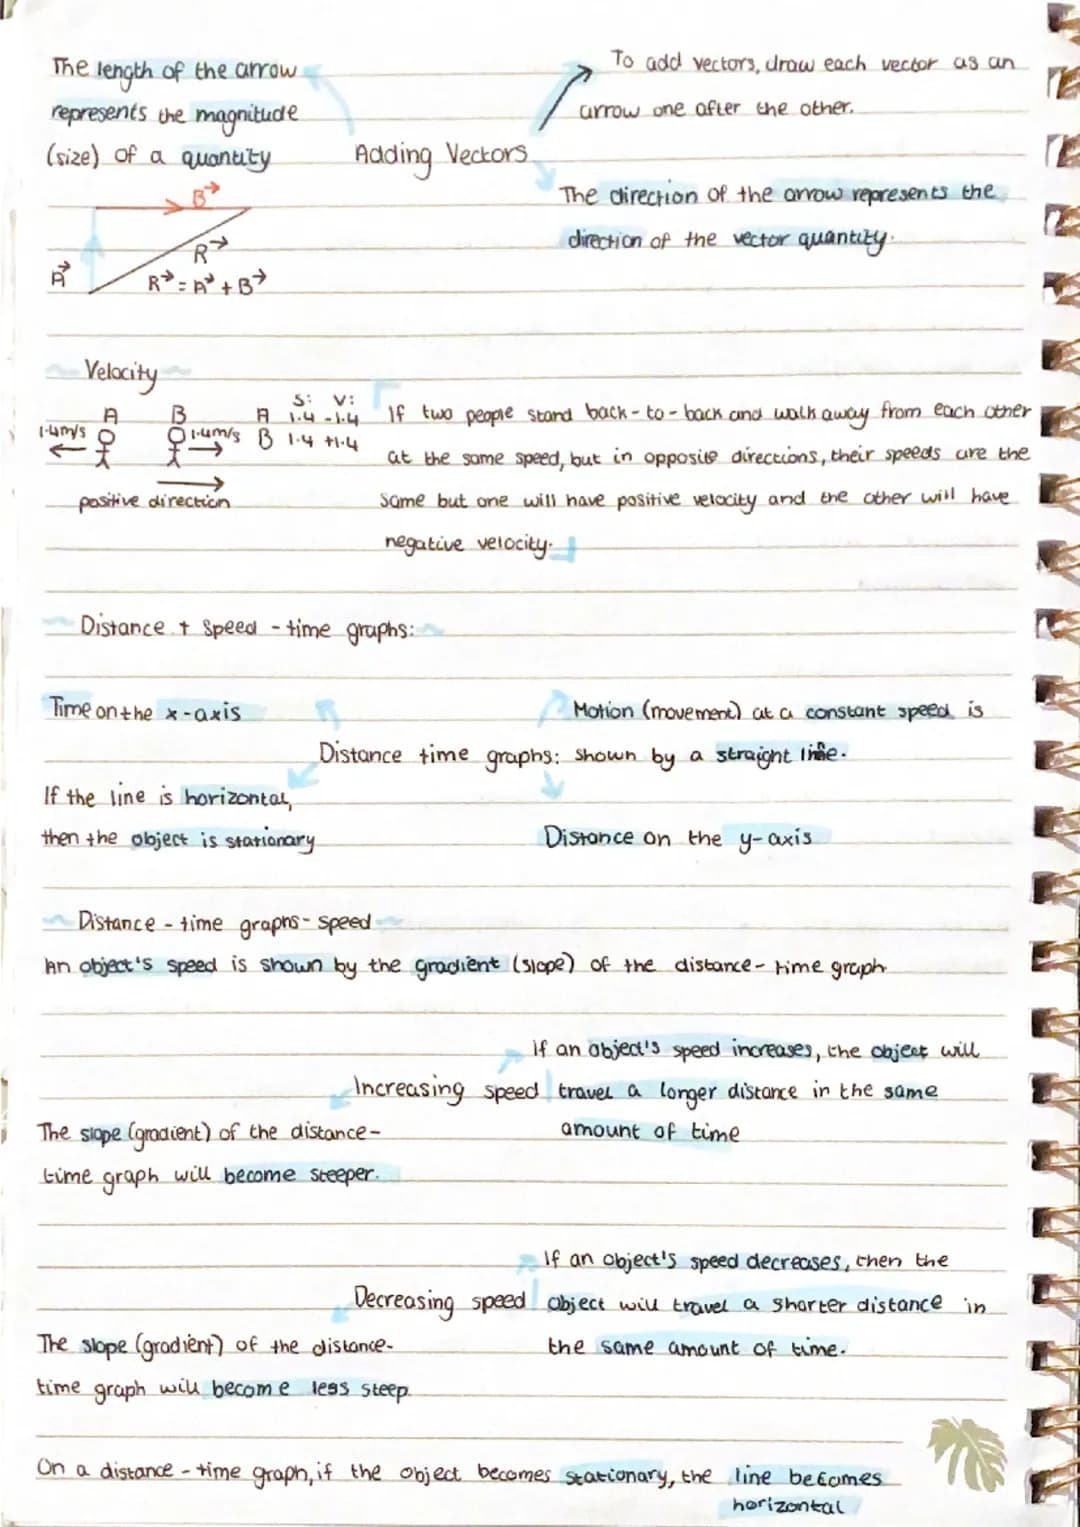 The length of the arrow
represents the magnitude
(size) of a quantity
Adding Vectors
To add vectors, draw each vector as an
arrow one after the other.
The direction of the arrow represents the
direction of the vector quantity.
B→
R→
A→
R→ = A→ + B→
Velocity
A B
1.4m/s 1.4m/s
positive direction
S: V:
A 1.4 -1.4
B 1.4 +1.4
If two people stand back-to-back and walk away from each other
at the same speed, but in opposite directions, their speeds are the
same but one will have positive velocity and the other will have
negative velocity.
Distance + Speed - time graphs:
Time on the x-axis
Motion (movement) at a constant speed is
Distance time graphs: shown by a straight line.
If the line is horizontal,
then the object is stationary
Distance on the y-axis
Distance - time graphs - speed
An object's speed is shown by the gradient (slope) of the distance - time graph
If an object's speed increases, the object will
Increasing speed travel a longer distance in the same
amount of time
The slope (gradient) of the distance-
time graph will become steeper.
If an object's speed decreases, then the
Decreasing speed object will travel a shorter distance in
the same amount of time.
The slope (gradient) of the distance-
time graph will become less steep.
On a distance - time graph, if the object becomes stationary, the line becomes
horizontal